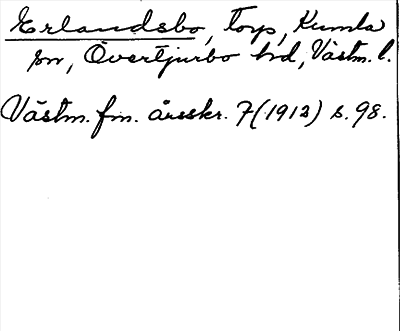 Erlandsbo, torp, Kumla
sn, Övertjurbo hd, Västm. l.
Västm. fm. årsskr. 7(1912) s. 98.